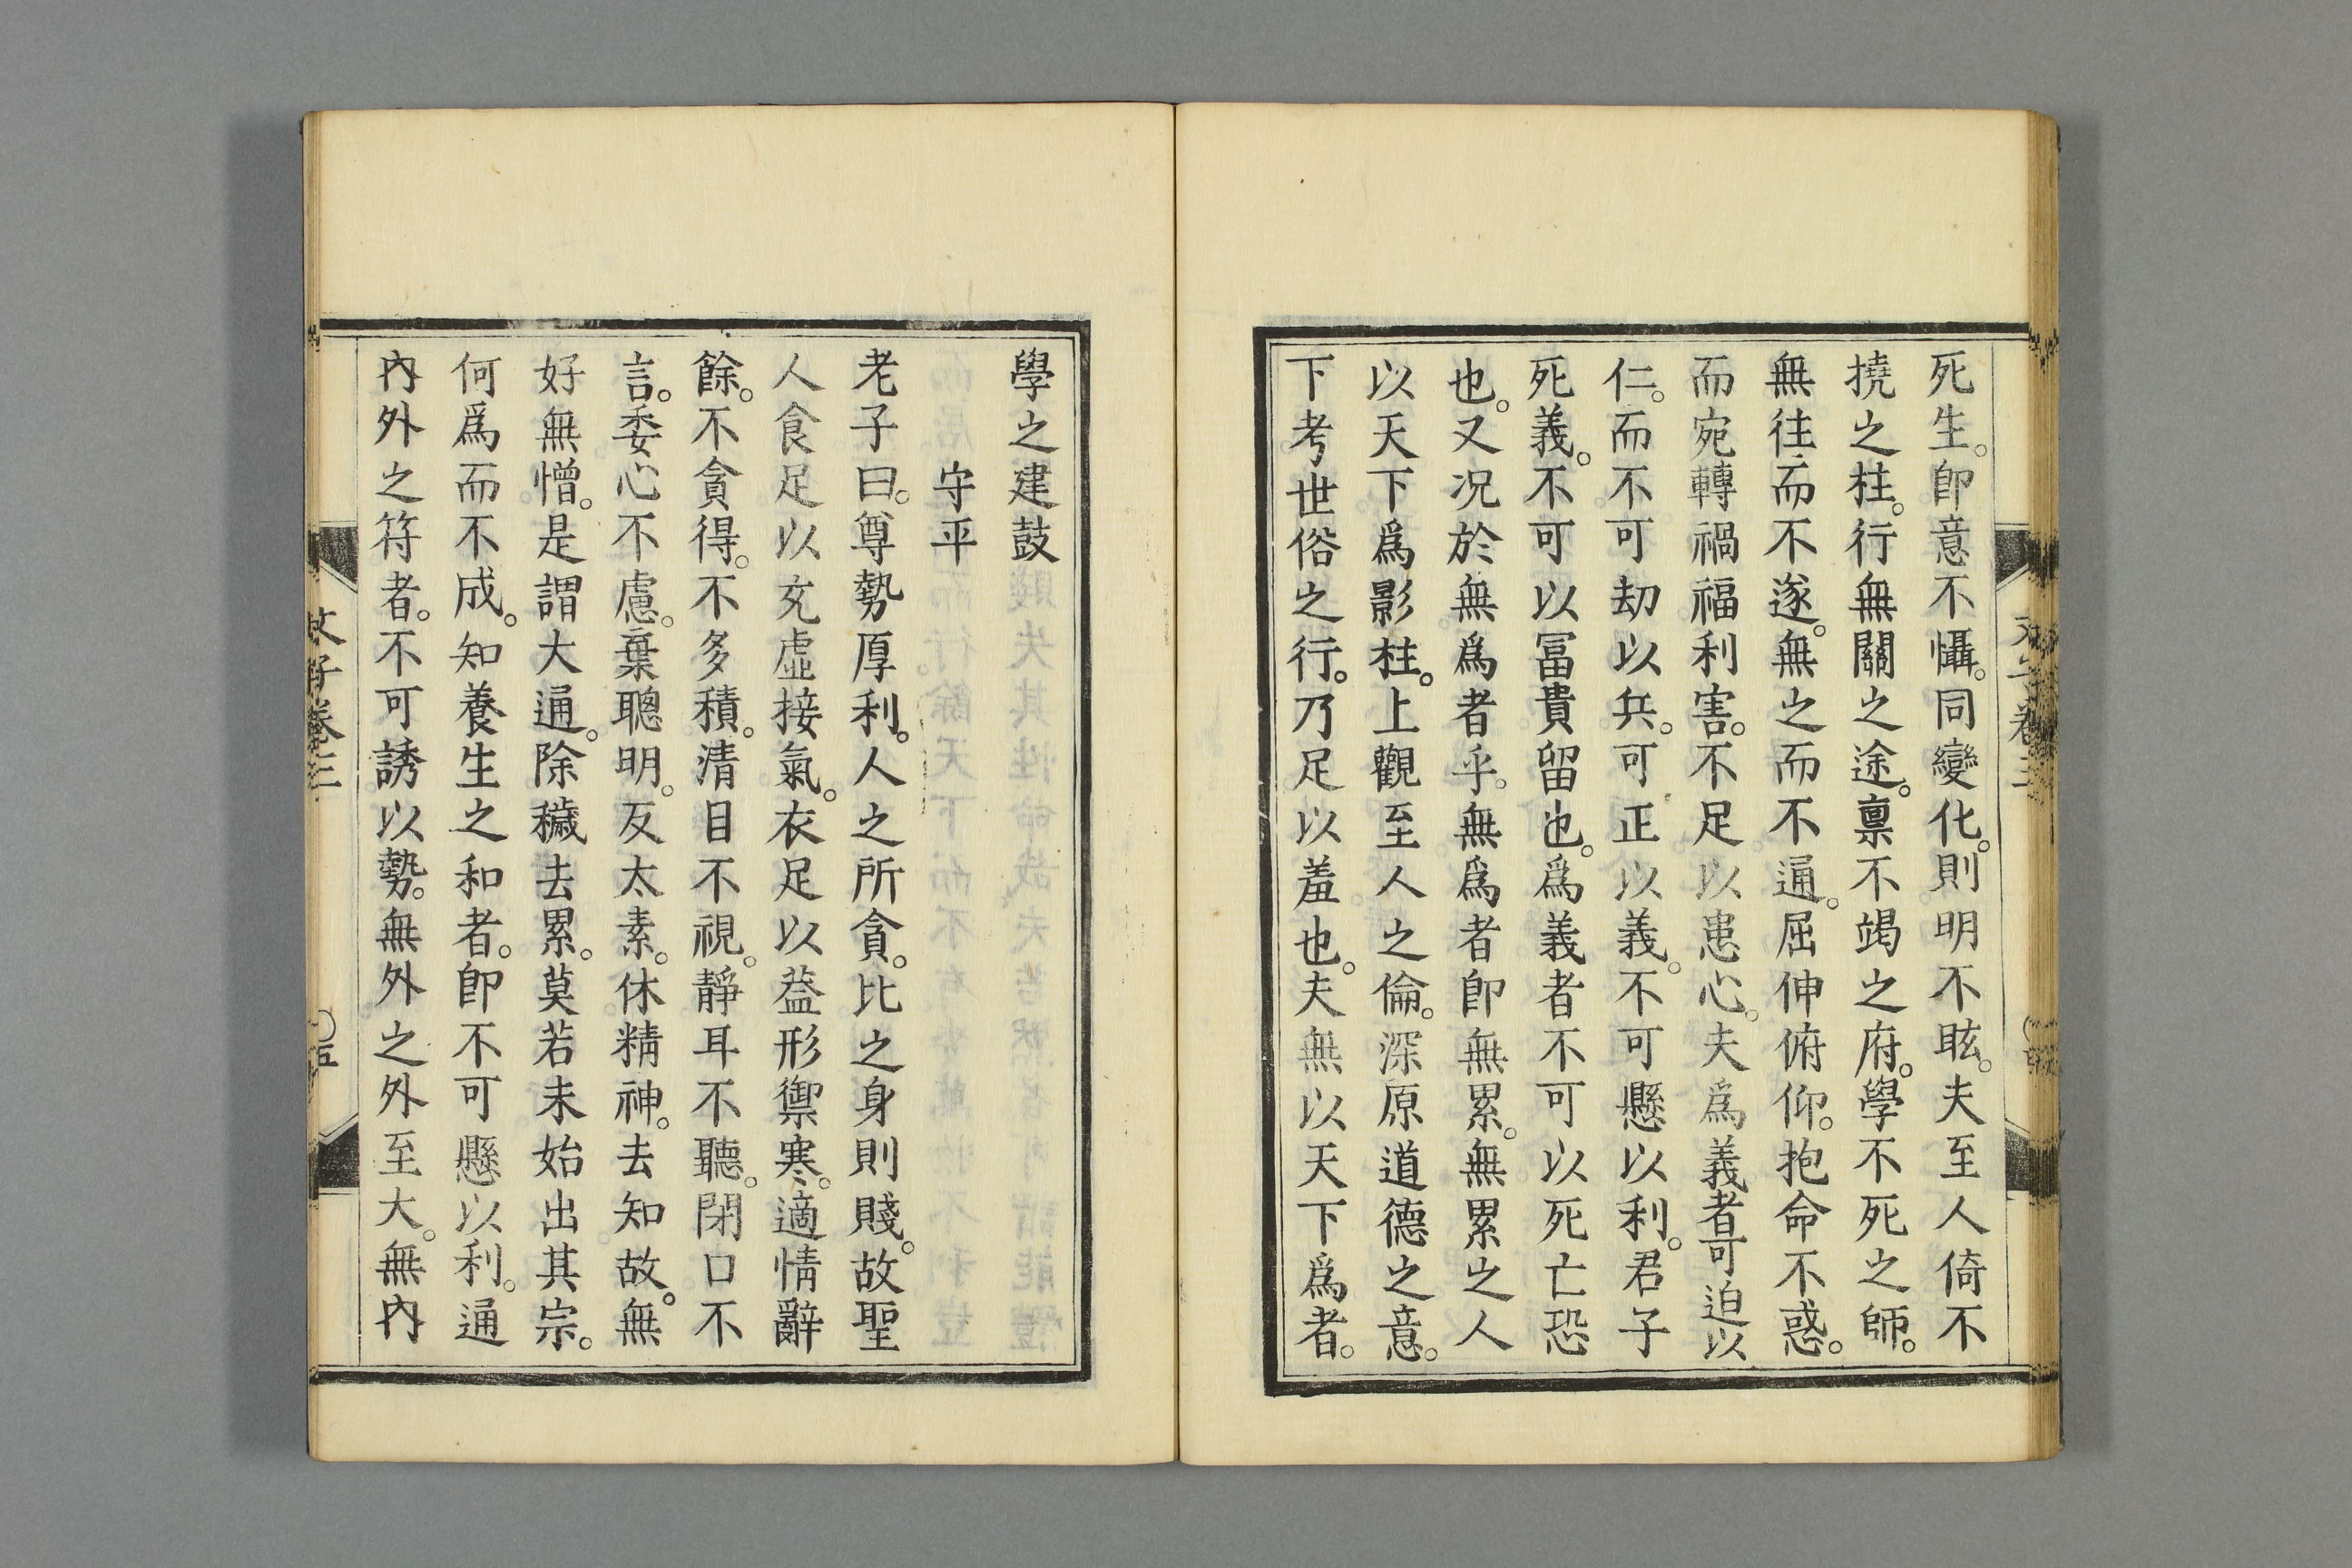 死生。卽意不懾。同變化。則明不眩。夫至人倚不
撓之柱。行無關之途。稟不竭之府。學不死之師。
無往而不遂。無之而不通。屈伸俯仰。抱命不惑。
而宛轉禍福利害。不足以患心。夫爲義者可迫以
仁。而不可劫以兵。可正以義。不可懸以利。君子
死義。不可以冨貴留也。爲義者不可以死亡恐
也。又况於無爲者乎。無爲者卽無累。無累之人
以天下爲影柱。上觀至人之倫。深原道德之意。
下考世俗之行。乃足以羞也。夫無以天下爲者。
學之建鼓
守平
老子曰。尊勢厚利。人之所貪。比之身則賤。故聖
人食足以充虛接氣。衣足以葢形禦寒。適情辭
餘。不貪得。不多積。清目不視。靜耳不聽。閉口不
言。委心不慮。棄聰明。反太素。休精神。去知故。無
好無憎。是謂大通。除穢去累。莫若未始出其宗。
何爲而不成。知養生之和者。卽不可懸以利。通
內外之符者。不可誘以勢。無外之外至大。無內
文子卷三
五